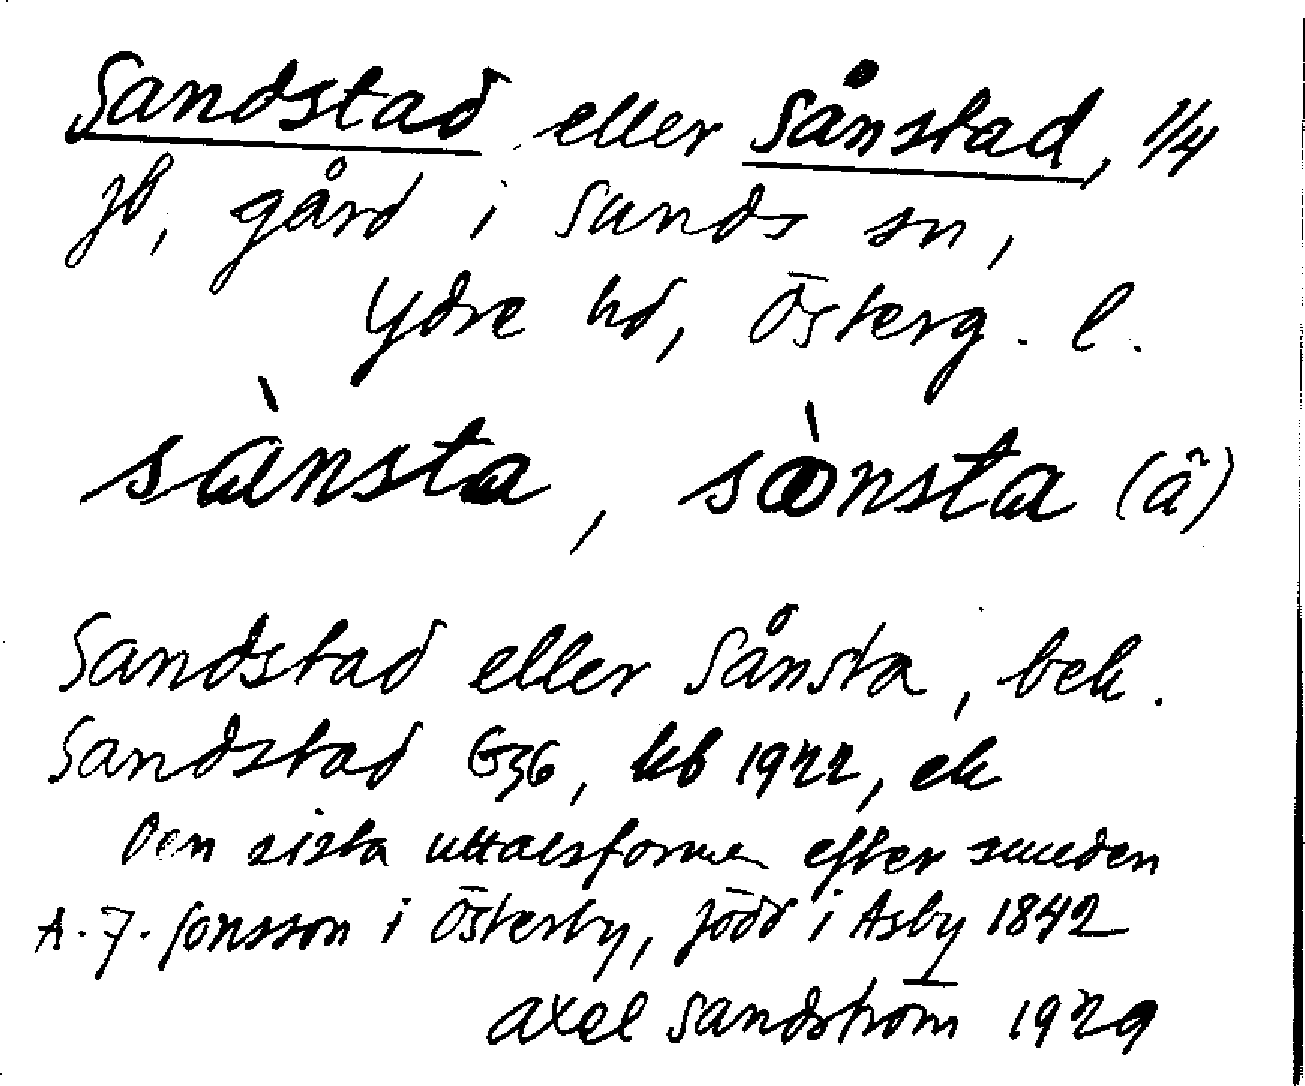 Sandstad eller Sånstad, 1/4
jb, gård i Sands sn,
Ydre hd, Österg. l.
sànsta, sònsta (å)
Sandstad eller Sånsta, bek.
Sandstad G36, kb 1922, ek
Den sista uttalsformen efter smeden
A. J. Jonsson i Österby, född i Asby 1842
Axel Sandström 1929